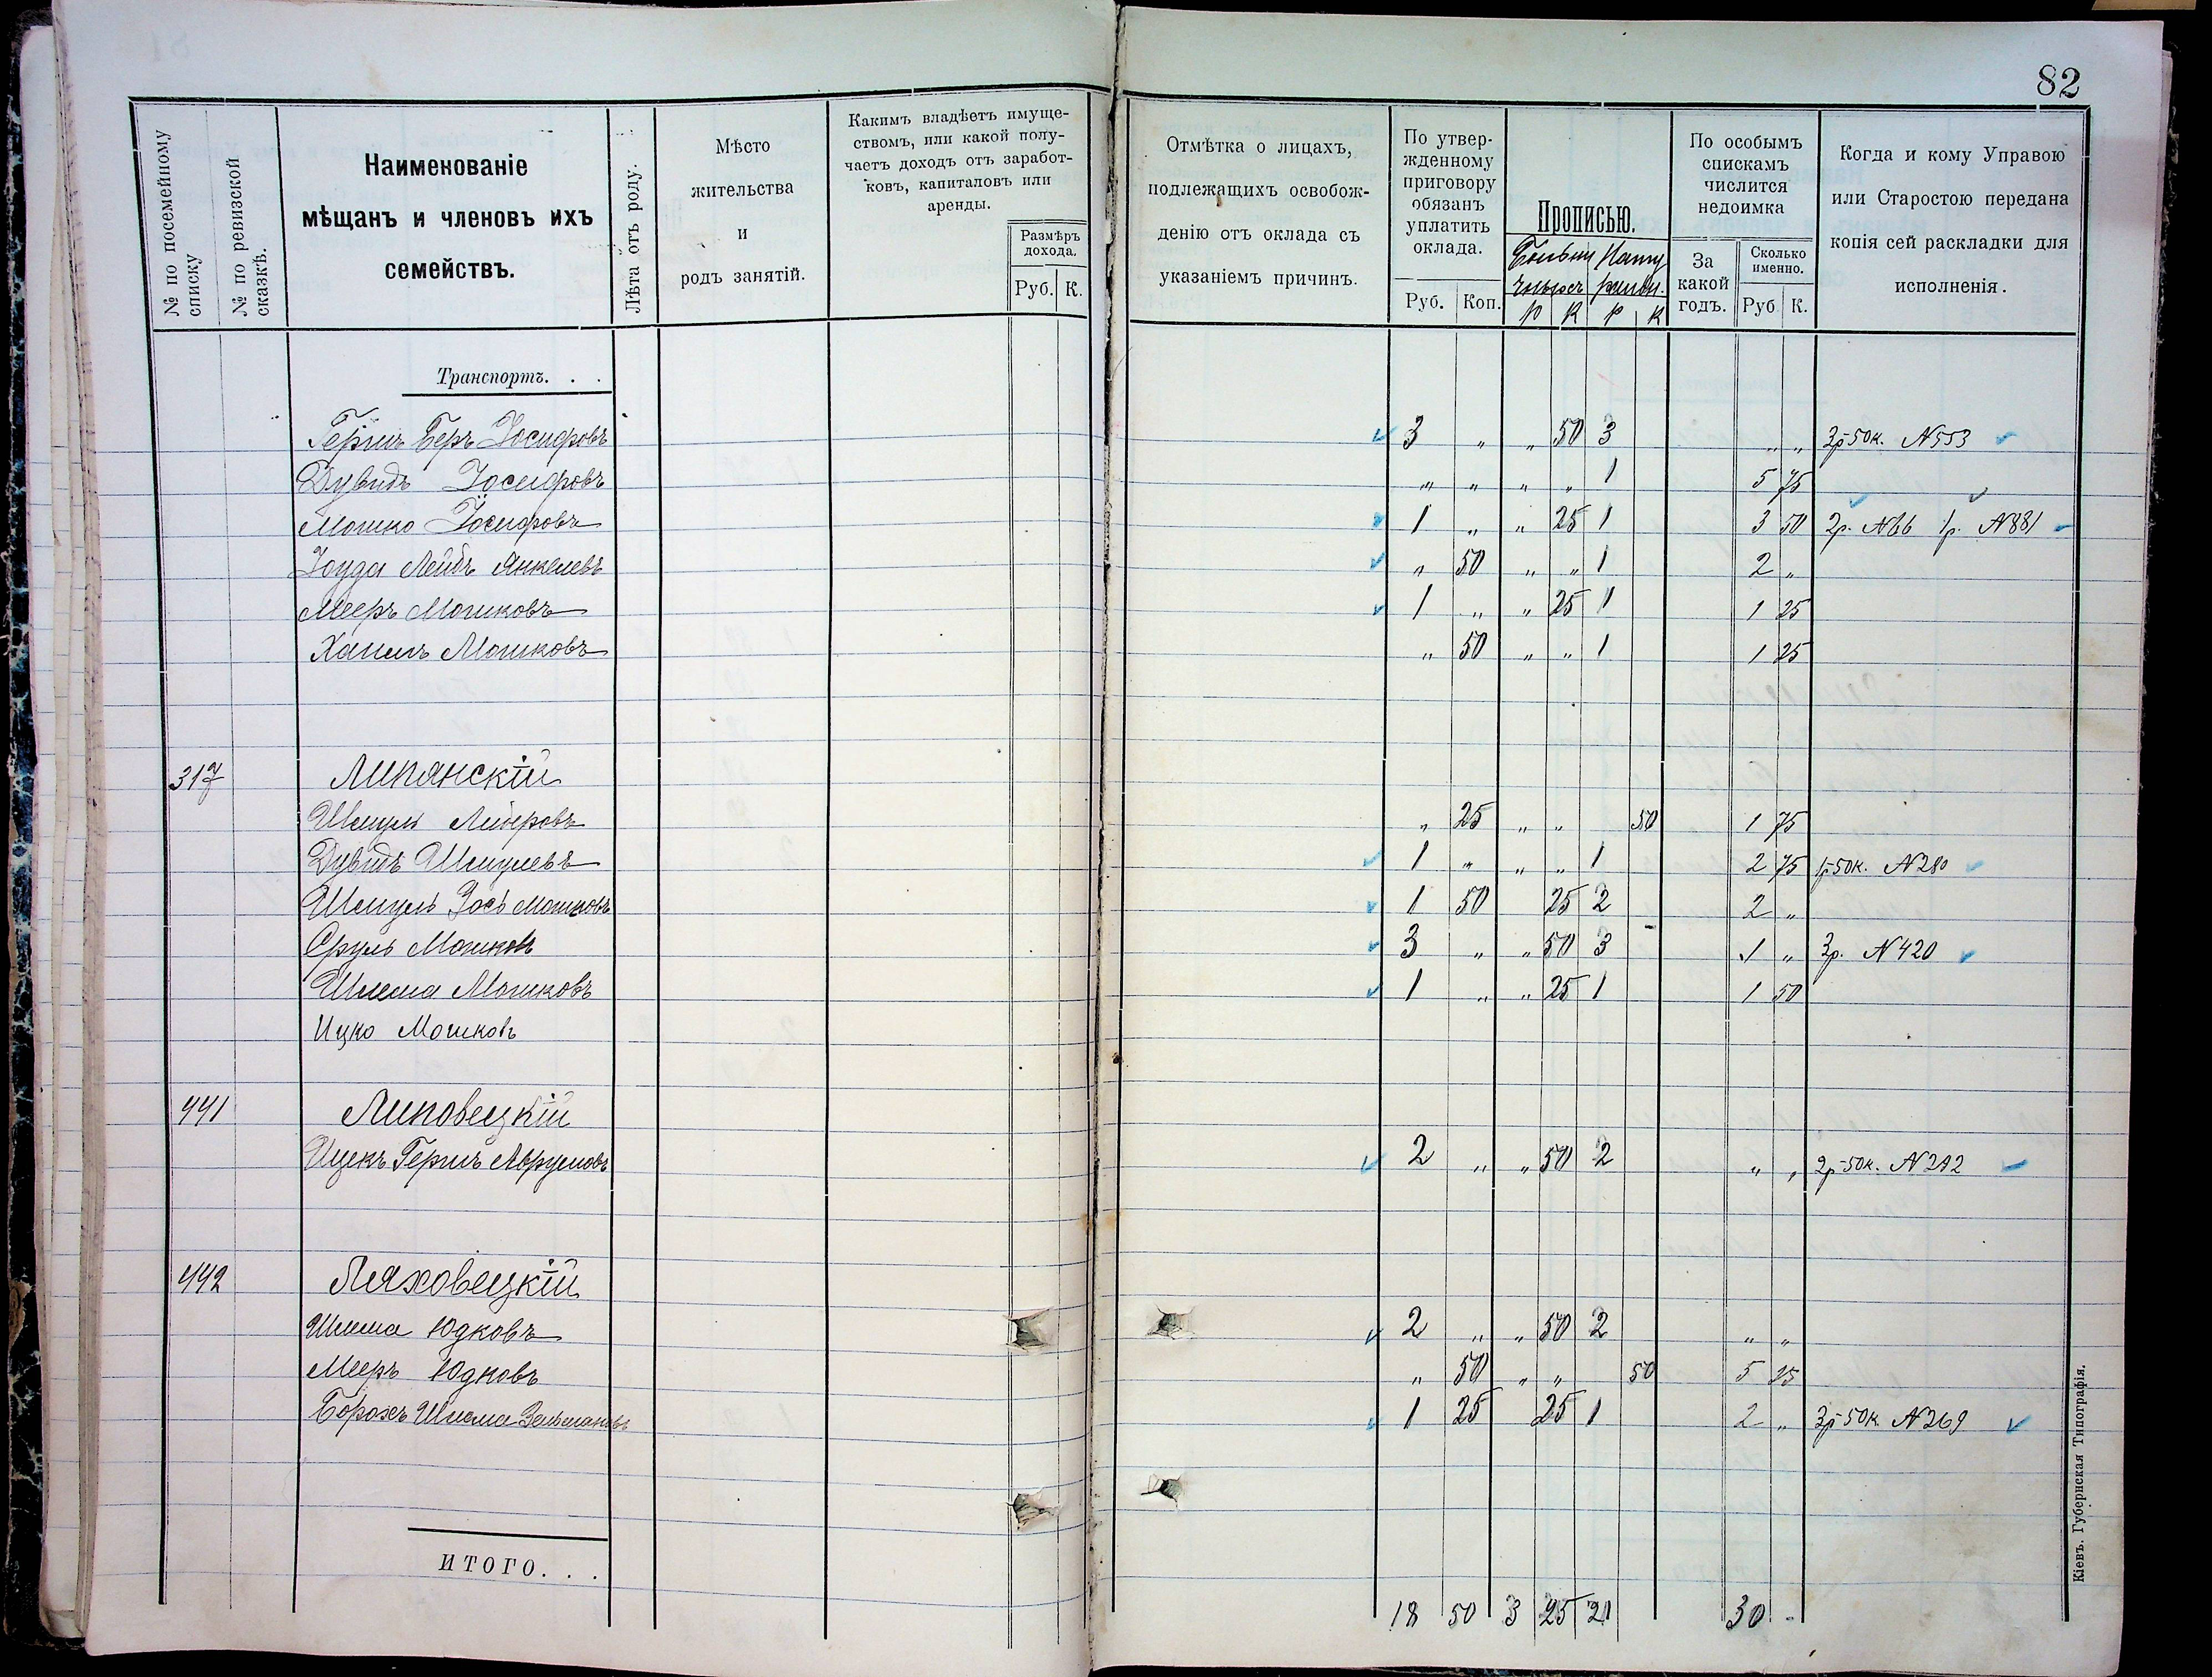 82
№ по посемейному списку
№ по ревизской сказкѣ.
Наименованіе
мѣщанъ и членовъ ихъ
семействъ.
Лѣта отъ роду.
Мѣсто
жительства
и
родъ занятій.
Какимъ владѣетъ имуще-
ствомъ, или какой полу-
чаетъ доходъ отъ заработ-
ковъ, капиталовъ или
аренды.
Размѣръ
дохода.
Руб. К.
Отмѣтка о лицахъ,
подлежащихъ освобож-
денію отъ оклада съ
указаніемъ причинъ.
По утвер-
жденному
приговору
обязанъ
уплатить
оклада.
Руб. Коп.
Прописью.
р К р К
По особымъ
спискамъ
числится
недоимка
За
какой
годъ.
Сколько
именно.
Руб К.
Когда и кому Управою
или Старостою передана
копія сей раскладки для
исполненія.
Транспортъ. . .
Гершъ Беръ Іосифовъ 3 „ „ 50 3 „ „ 3р 50к. N553
Дувидъ Іосифовъ „ „ „ „ 1 5 75
Мошко Іосифовъ 1 „ „ 25 1 3 50 2р. N66 1р. N881
Іоуда Лейбъ Янкелевъ „ 50 „ „ 1 2 „
Мееръ Мошковъ 1 „ „ 25 1 1 25
Хаимъ Мошковъ „ 50 „ „ 1 1 25
317 Липянскій
Шмуль Лейзеровъ „ 25 „ „ 50 1 75
Дувидъ Шмулевъ 1 „ „ „ 1 2 75 1р 50к. N280
Шмуль Іосъ Мошковъ 1 50 25 2 2 „
Сруль Мошковъ 3 „ „ 50 3 1 „ 3р. N420
Шлема Мошковъ 1 „ „ 25 1 1 50
Ицко Мошковъ
441 Липовецкій
Ицекъ Гершъ Аврумовъ 2 „ „ 50 2 „ „ 2р 50к. N292
442 Ляховецкій
Шлема Юдковъ 2 „ „ 50 2 „ „
Мееръ Юдковъ „ 50 „ „ 50 5 25
Борохъ Шлема Зельмановъ 1 25 25 1 2 „ 3р 50к N269
ИТОГО. . .
18 50 3 25 21 30 -
Кіевъ. Губернская Типографія.